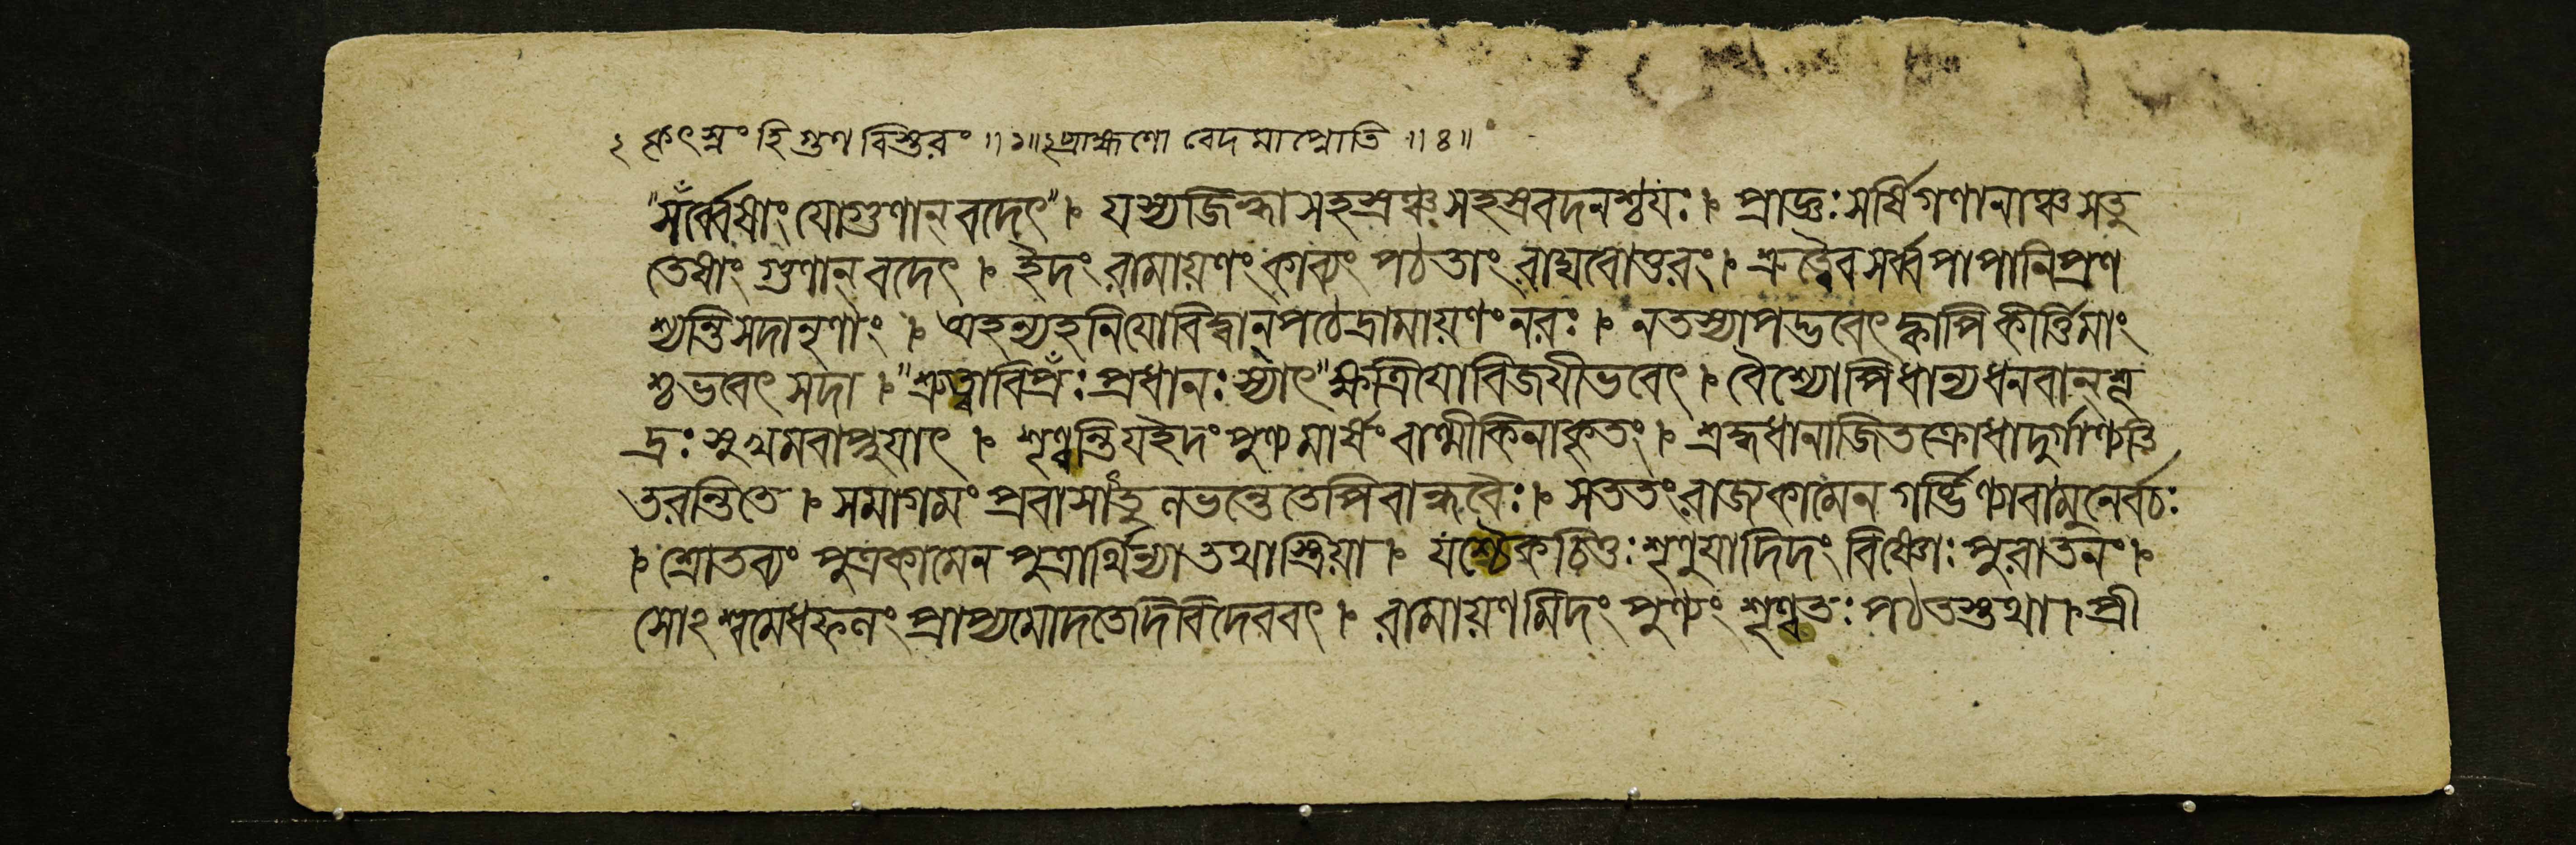 ২ কৃৎস্নং হি গুণ বিস্তরং ॥১॥ ২ ব্রাহ্মণো বেদমাপ্নোতি ॥৪॥
"সঁর্ব্বেষাং যোগুণান্ বদেৎ"। যস্যজিহ্বাসহস্রঞ্চসহস্রবদনশ্চযঃ। প্রাজ্ঞঃসর্ষিগণানাঞ্চসতু
তেষাং গুণান্ বদেৎ । ইদং রামায়ণং কাব্যং পঠতাং রাঘবোত্তরং। শ্রুত্বৈবসর্ব্বপাপানিপ্রণ
শ্যন্তিসদানৃণাং । অহন্যহনিযোবিদ্বান্পঠেদ্রামায়ণংনরঃ । নতস্যাপদ্ভবেৎ ক্বাপি কীর্ত্তিমাং
শ্চভবেৎ সদা ।"শ্রুত্বাবিপ্রঁঃ প্রধানঃ স্যাৎ" ক্ষত্রিয়োবিজয়ীভবেৎ । বৈশ্যোপিধান্যধনবান্শূ
দ্রঃ সুখমবাপ্নুযাৎ । শৃণ্বন্তিযইদং পুণ্যমার্ষং বাল্মীকিনাকৃতং । শ্রদ্দধানাজিতক্রোধাদুর্গাণ্যতি
তরন্তিতে । সমাগমং প্রবাসান্তু লভন্তেতেপিবান্ধবৈঃ । সততংরাজ্যকামেন গর্ভ্ভিণ্যাবামুনের্বচঃ
। শ্রোতব্যং পুত্রকামেন পুত্রার্থিন্যাতথাস্ত্রিয়া । যশ্চৈকচিত্তঃ শৃণুযাদিদং বিষ্ণোঃ পুরাতনং ।
সোঽশ্বমেধফলং প্রাপ্যমোদতেদিবিদেববৎ । রামায়ণমিদং পুণ্যং শৃণ্বতঃ পঠতস্তথা । প্রী